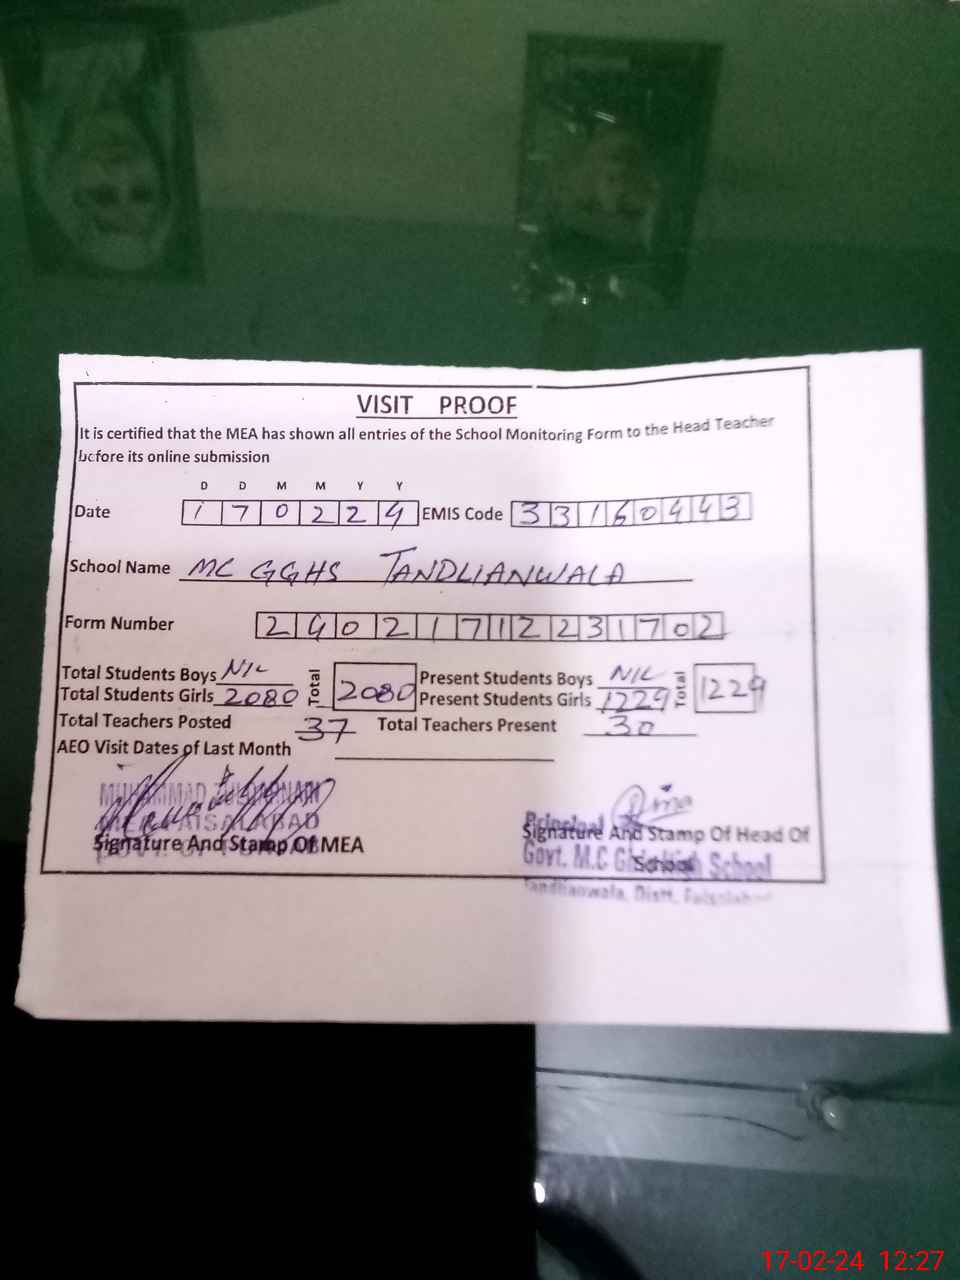 VISIT PROOF
It is certified that the MEA has shown all entries of the School Monitoring Form to the Head Teacher
before its online submission
D D M M Y Y
Date 1 7 0 2 2 4 EMIS Code 3 3 1 6 0 4 4 3
School Name MC GGHS TANDLIANWALA
Form Number 2 4 0 2 1 7 1 2 2 3 1 7 0 2
Total Students Boys NIL Total 2080 Present Students Boys NIL Total 1229
Total Students Girls 2080 Present Students Girls 1229
Total Teachers Posted 37 Total Teachers Present 30
AEO Visit Dates of Last Month
MUHAMMAD
FAISALABAD
Signature And Stamp Of MEA
GOVT. OF PUNJAB
Principal
Signature And Stamp Of Head Of
School
Govt. M.C Girls High School
Tandlianwala, Distt. Faisalabad
17-02-24 12:27